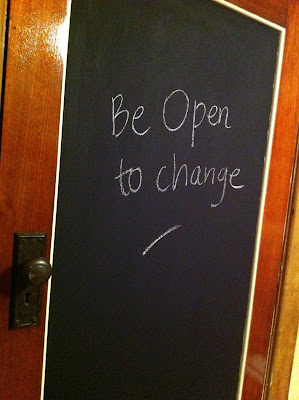 Be Open
to change